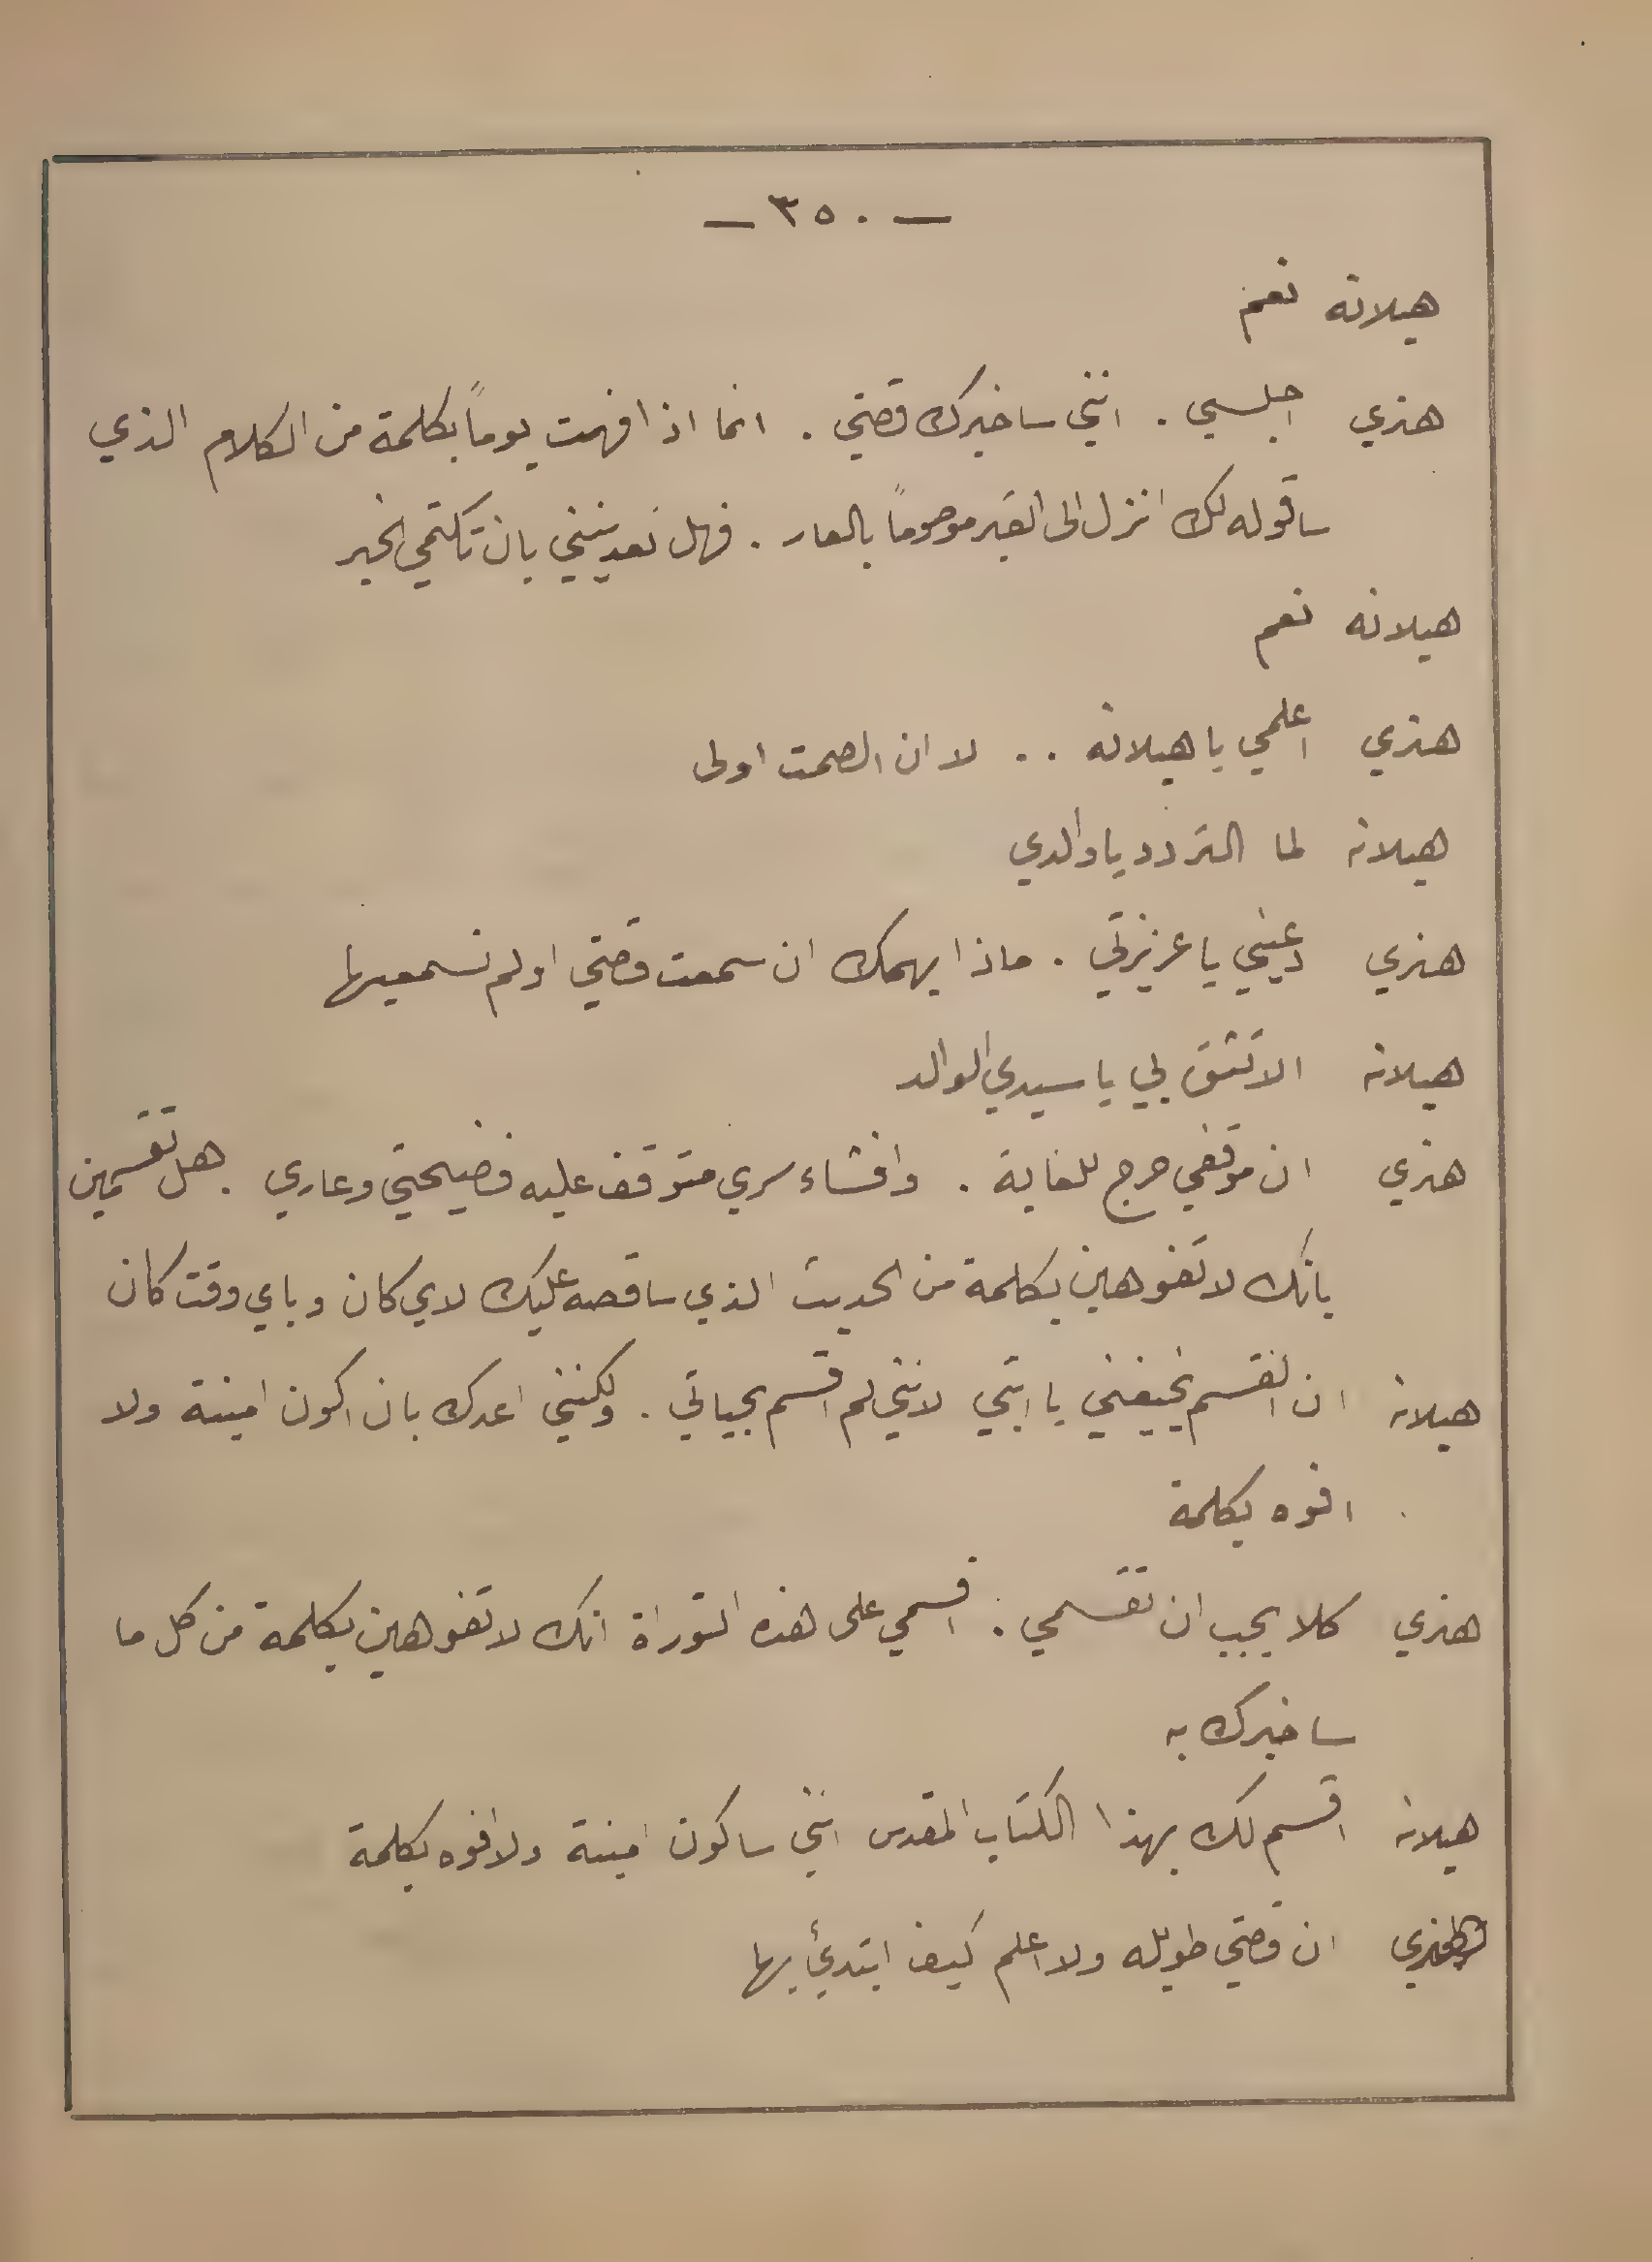 — ٣٥٠ —
هيلانه نعم
هنري اجلسي . انني ساخبرك قصتي . انما اذا فهت يوماً بكلمة من الكلام الذي
ساقوله لك انزل الى القبر موصوماً بالعار . فهل تعدينني بان تكتمي الخبر
هيلانه نعم
هنري اعلمي يا هيلانه .. لا ان الصمت اولى
هيلانه لما التردد يا والدي
هنري دعيني يا عزيزتي . ماذا يهمك ان سمعت قصتي او لم تسمعيها
هيلانه الا تثق بي يا سيدي الوالد
هنري ان موقفي حرج للغاية . وافشاء سري متوقف عليه فضيحتي وعاري . هل تقسمين
بانك لا تفوهين بكلمة من الحديث الذي ساقصه عليك لاي كان وباي وقت كان
هيلانه ان القسم يخيفني يا ابتي لانني لم اقسم بحياتي . ولكنني اعدك بان اكون امينة ولا
افوه بكلمة
هنري كلا يجب ان تقسمي . اقسمي على هذه التوراة انك لا تفوهين بكلمة من كل ما
ساخبرك به
هيلانه اقسم لك بهذا الكتاب المقدس انني ساكون امينة ولا افوه بكلمة
هنري ان قصتي طويله ولا اعلم كيف ابتدئ بها